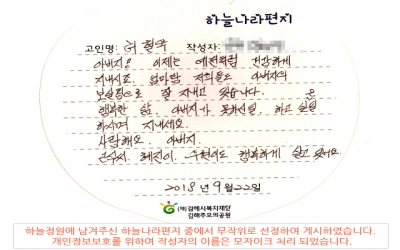 하늘나라편지
고인명 허 작성자:
아버지! 이제는 예전처럼 건강하게
지내시죠. 엄마랑 저희들도 아버지의
보살핌으로 잘 지내고 있습니다.
행복한 삶, 아버지가 못하신일, 하고 싶은일
하시며 지내세요.
사랑해요. 아버지.
행복하게 살고 있어요.
2018년 9월 22일
(재)김해시복지재단
김해추모의공원
하늘정원에 남겨주신 하늘나라편지 중에서 무작위로 선정하여 게시하였습니다.
개인정보보호를 위하여 작성자의 이름은 모자이크 처리 되었습니다.